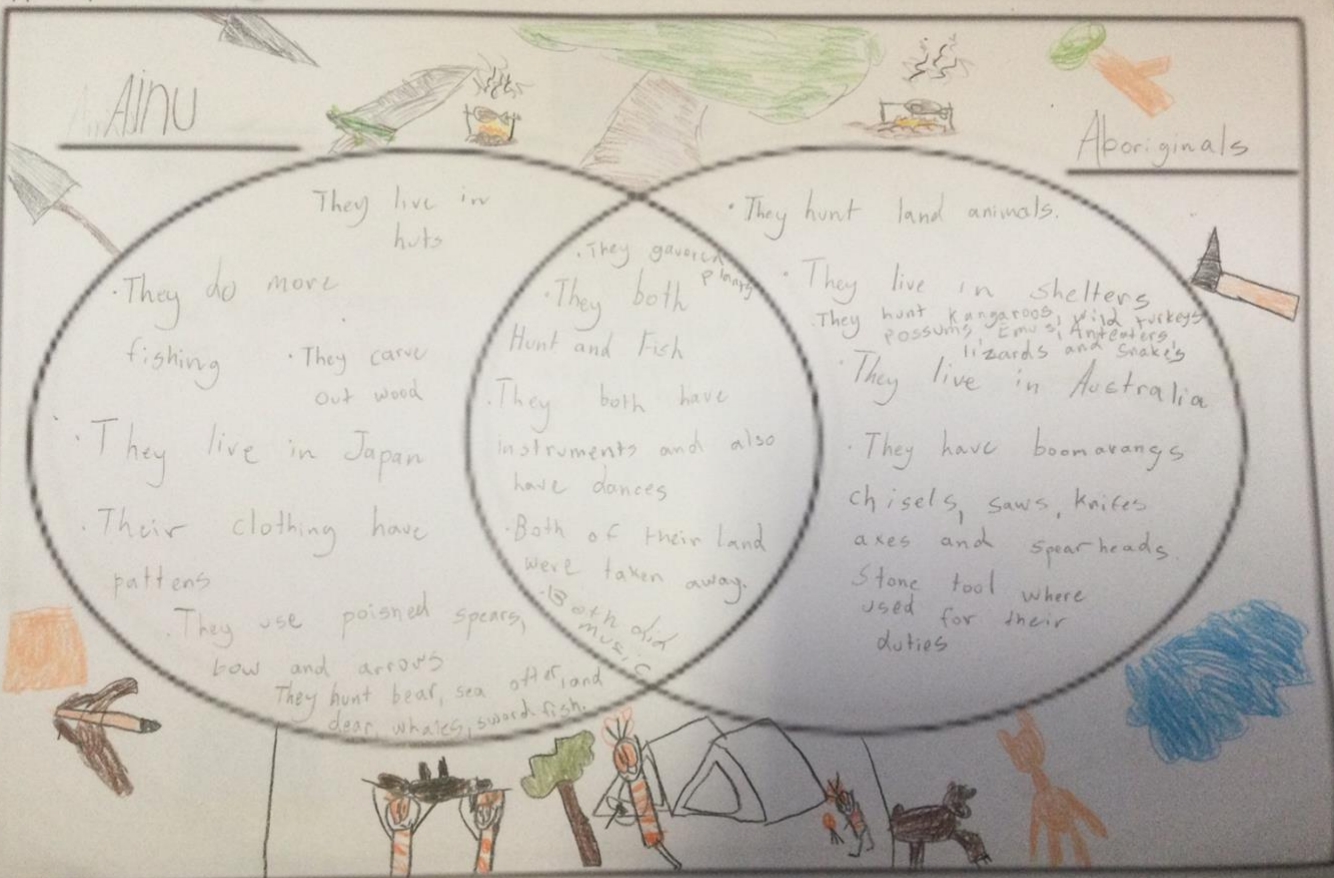 Ainu
Aboriginals
They live in
huts
·They do more
fishing
·They carve
out wood
·They live in Japan
·Their clothing have
pattens
·They use poisned spears,
bow and arrows
They hunt bear, sea otter, and
dear, whales, sword fish.
·They
plants
·They both
Hunt and Fish
·They both have
instruments and also
have dances
·Both of their land
were taken away.
·Both did
music
·They hunt land animals.
·They live in shelters
·They hunt Kangaroos, wild turkeys
possums, Emus, Anteaters,
lizards and snakes
·They live in Australia
·They have boomarangs
chisels, saws, knifes
axes and spearheads.
Stone tool where
used for their
duties